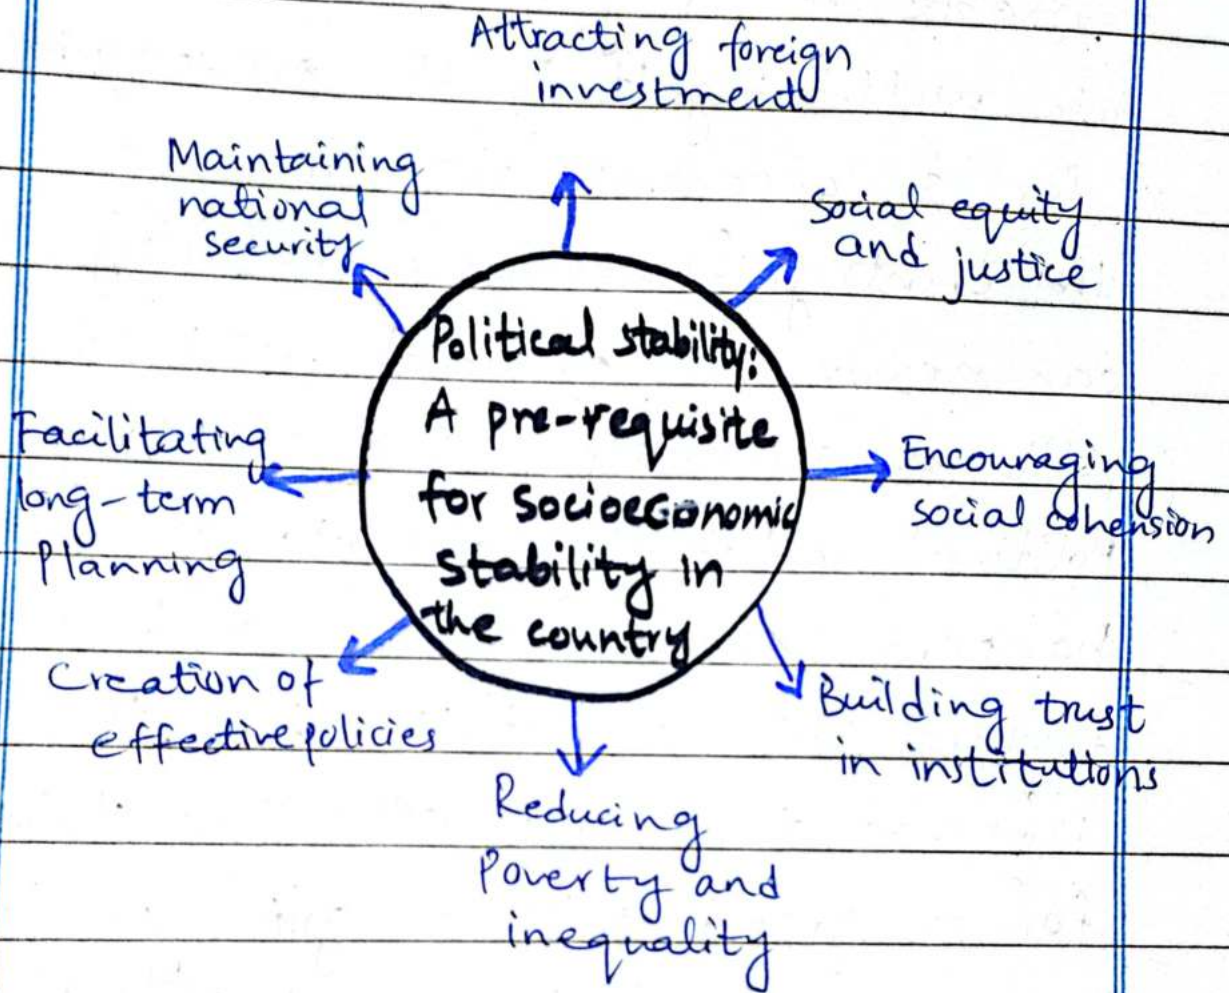 Attracting foreign
investment
Maintaining
national
security
Social equity
and justice
Political stability:
A pre-requisite
for socioeconomic
stability in
the country
Facilitating
long-term
Planning
Encouraging
social cohension
Creation of
effective policies
Building trust
in institutions
Reducing
Poverty and
inequality